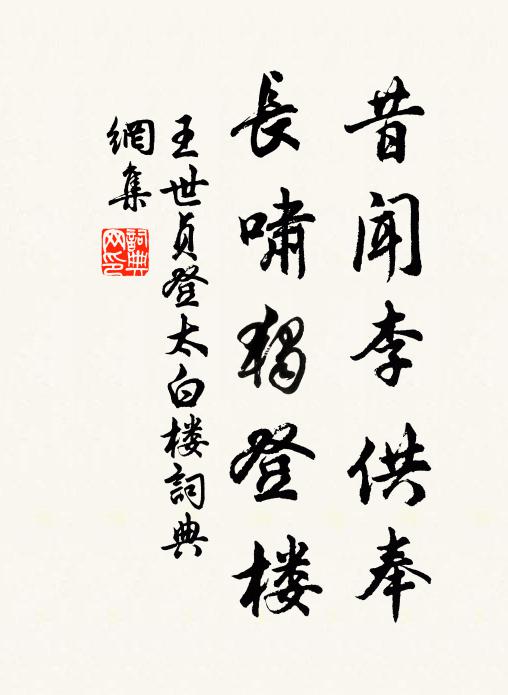 昔闻李供奉
長嘯獨登楼
王世貞登太白楼詞典
網集
詞典
网印